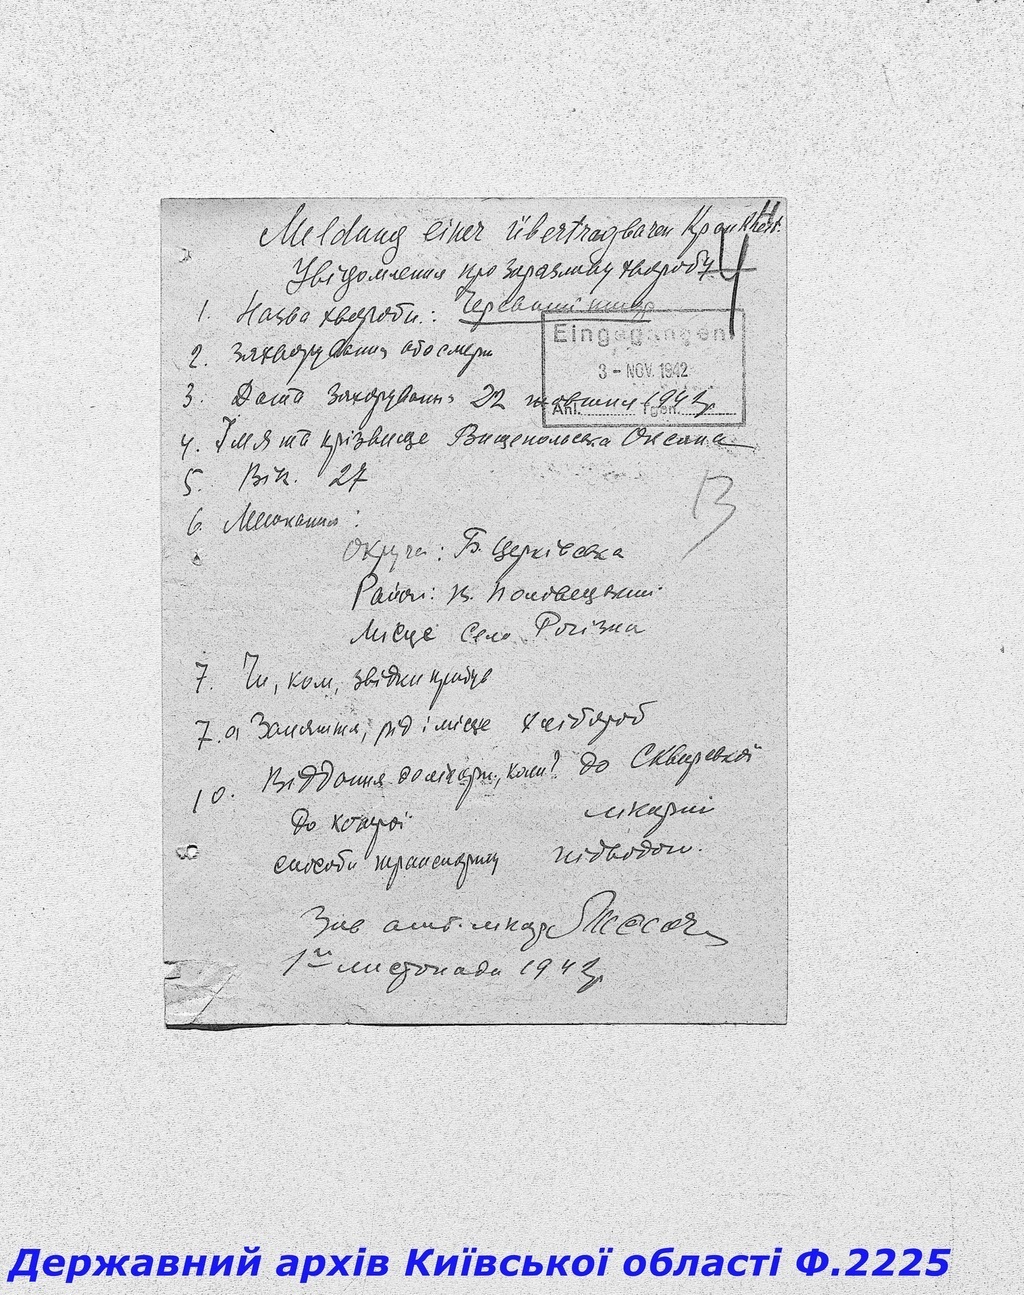 Meldung einer übertragbaren Krankheit.
Увідомлення про заразливу хворобу
4
1. Назва хвороби: Черевний тиф
Eingegangen
3 - NOV. 1942
Anl. Tgeb.
2. Захворування або смерти
3. Дата Захорування 22 жовтня 1942 р
4. Імя та прізвище Вищепольська Оксана
5. Вік. 27
6. Мешкання:
Округа: Б. Церківська
Район: В. Половецький.
Місце село Рогізна
7. Чи, ком, звідки прибув
7.а Заняття, рід і місце хлібороб
10. Віддання до лікарн., коли? до Сквирської
до котрої лікарні
способи транспорту підводою.
Зав амб. лікар
1го листопада 1942 р
Державний архів Київської області Ф.2225